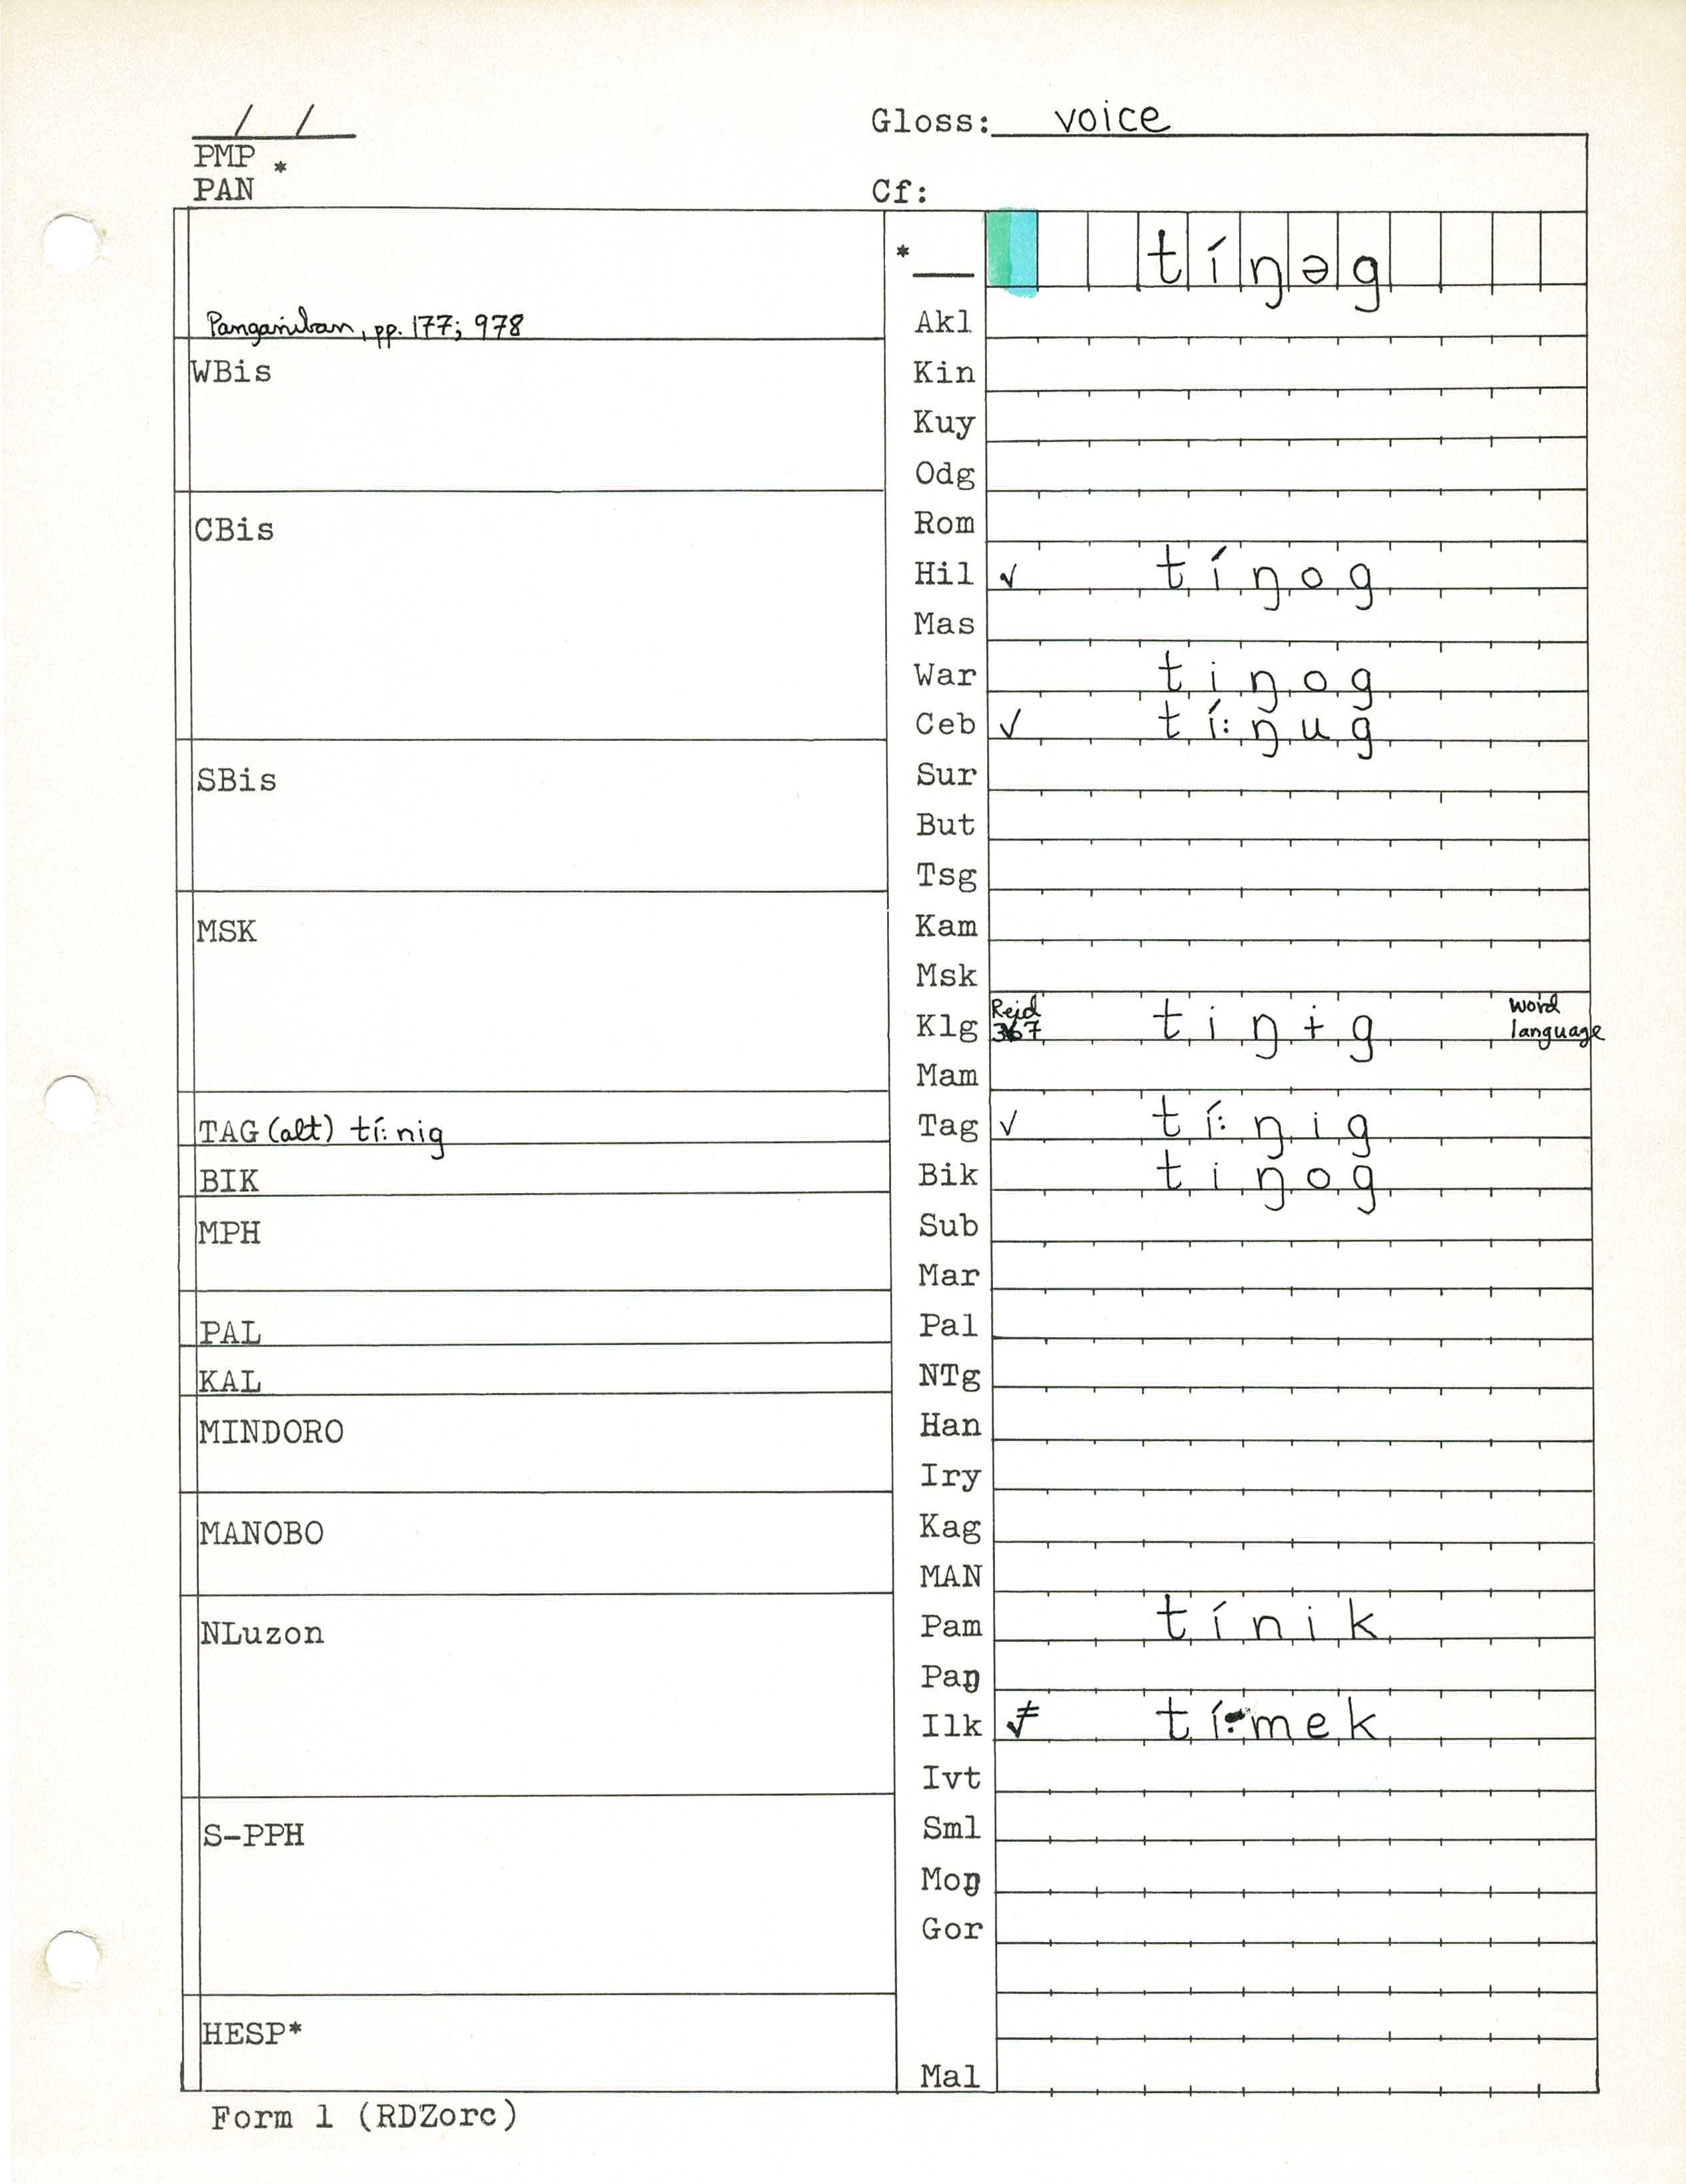 / /
Gloss: voice
PMP *
PAN
Cf:
* tíŋəg
Panganiban, pp. 177; 978
Akl
WBis
Kin
Kuy
Odg
CBis
Rom
Hil ✓ tíŋog
Mas
War tiŋog
Ceb ✓ tí:ŋug
SBis
Sur
But
Tsg
MSK
Kam
Msk
Klg Reid 367 tiŋɨg word language
Mam
TAG (alt) tí:nig
Tag ✓ tí:ŋig
BIK
Bik tiŋog
MPH
Sub
Mar
PAL
Pal
KAL
NTg
MINDORO
Han
Iry
MANOBO
Kag
MAN
NLuzon
Pam tínik
Paŋ
Ilk ≠ tí:mek
Ivt
S-PPH
Sml
Moŋ
Gor
HESP*
Mal
Form 1 (RDZorc)